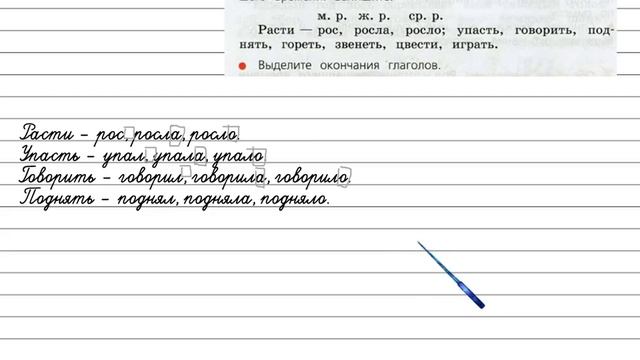 м. р. ж. р. ср. р.
Расти — рос, росла, росло; упасть, говорить, под-
нять, гореть, звенеть, цвести, играть.
Выделите окончания глаголов.
Расти – рос, росла, росло.
Упасть – упал, упала, упало
Говорить – говорил, говорила, говорило.
Поднять – поднял, подняла, подняло.